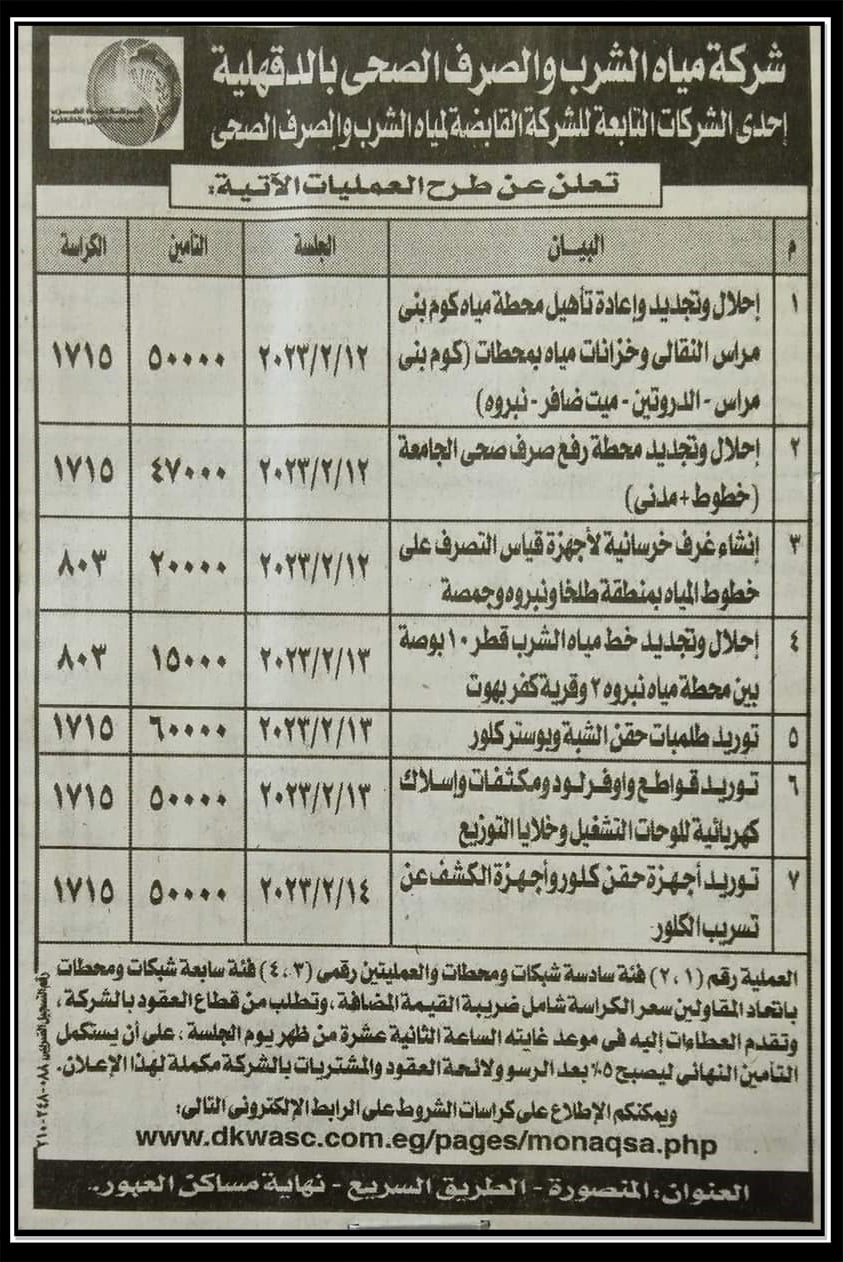 شركة مياه الشرب والصرف الصحى بالدقهلية
إحدى الشركات التابعة للشركة القابضة لمياه الشرب والصرف الصحى
تعلن عن طرح العمليات الآتية:
م البيان الجلسة التأمين الكراسة
١ إحلال وتجديد وإعادة تأهيل محطة مياه كوم بنى
مراس النقالى وخزانات مياه بمحطات (كوم بنى ٢٠٢٣/٢/١٢ ٥٠٠٠٠ ١٧١٥
مراس - الدروتين - ميت ضافر - نبروه)
٢ إحلال وتجديد محطة رفع صرف صحى الجامعة ٢٠٢٣/٢/١٢ ٤٧٠٠٠ ١٧١٥
(خطوط + مدنى)
٣ إنشاء غرف خرسانية لأجهزة قياس التصرف على ٢٠٢٣/٢/١٢ ٢٠٠٠٠ ٨٠٣
خطوط المياه بمنطقة طلخا ونبروه وجمصة
٤ إحلال وتجديد خط مياه الشرب قطر ١٠ بوصة ٢٠٢٣/٢/١٣ ١٥٠٠٠ ٨٠٣
بين محطة مياه نبروه ٢ وقرية كفر بهوت
٥ توريد طلمبات حقن الشبة وبوستر كلور ٢٠٢٣/٢/١٣ ٦٠٠٠٠ ١٧١٥
٦ توريد قواطع واوفرلود ومكثفات وإسلاك ٢٠٢٣/٢/١٣ ٥٠٠٠٠ ١٧١٥
كهربائية للوحات التشغيل وخلايا التوزيع
٧ توريد أجهزة حقن كلور وأجهزة الكشف عن ٢٠٢٣/٢/١٤ ٥٠٠٠٠ ١٧١٥
تسريب الكلور
العملية رقم (١، ٢) فئة سادسة شبكات ومحطات والعمليتين رقمى (٣، ٤) فئة سابعة شبكات ومحطات
باتحاد المقاولين سعر الكراسة شامل ضريبة القيمة المضافة، وتطلب من قطاع العقود بالشركة،
وتقدم العطاءات إليه فى موعد غايته الساعة الثانية عشرة من ظهر يوم الجلسة، على أن يستكمل
التأمين النهائى ليصبح ٥٪ بعد الرسو ولائحة العقود والمشتريات بالشركة مكملة لهذا الإعلان.
ويمكنكم الإطلاع على كراسات الشروط على الرابط الإلكترونى التالى:
www.dkwasc.com.eg/pages/monaqsa.php
العنوان: المنصورة - الطريق السريع - نهاية مساكن العبور..
رقم التسجيل الضريبى